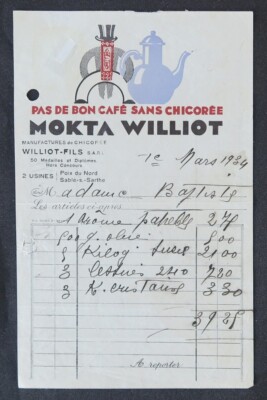 PAS DE BON CAFÉ SANS CHICORÉE
MOKTA WILLIOT
MANUFACTURES de CHICORÉE
WILLIOT-FILS S.A.R.L.
50 Médailles et Diplômes
Hors Concours
2 USINES Poix du Nord
Sablé-s-Sarthe
1e Mars 1934
Madame
Les articles ci-après
1 2 70
500 g. 5 00
5 Kilog sucre 21 00
3 2 7 80
3 K. cristaux 3 30
39
A reporter